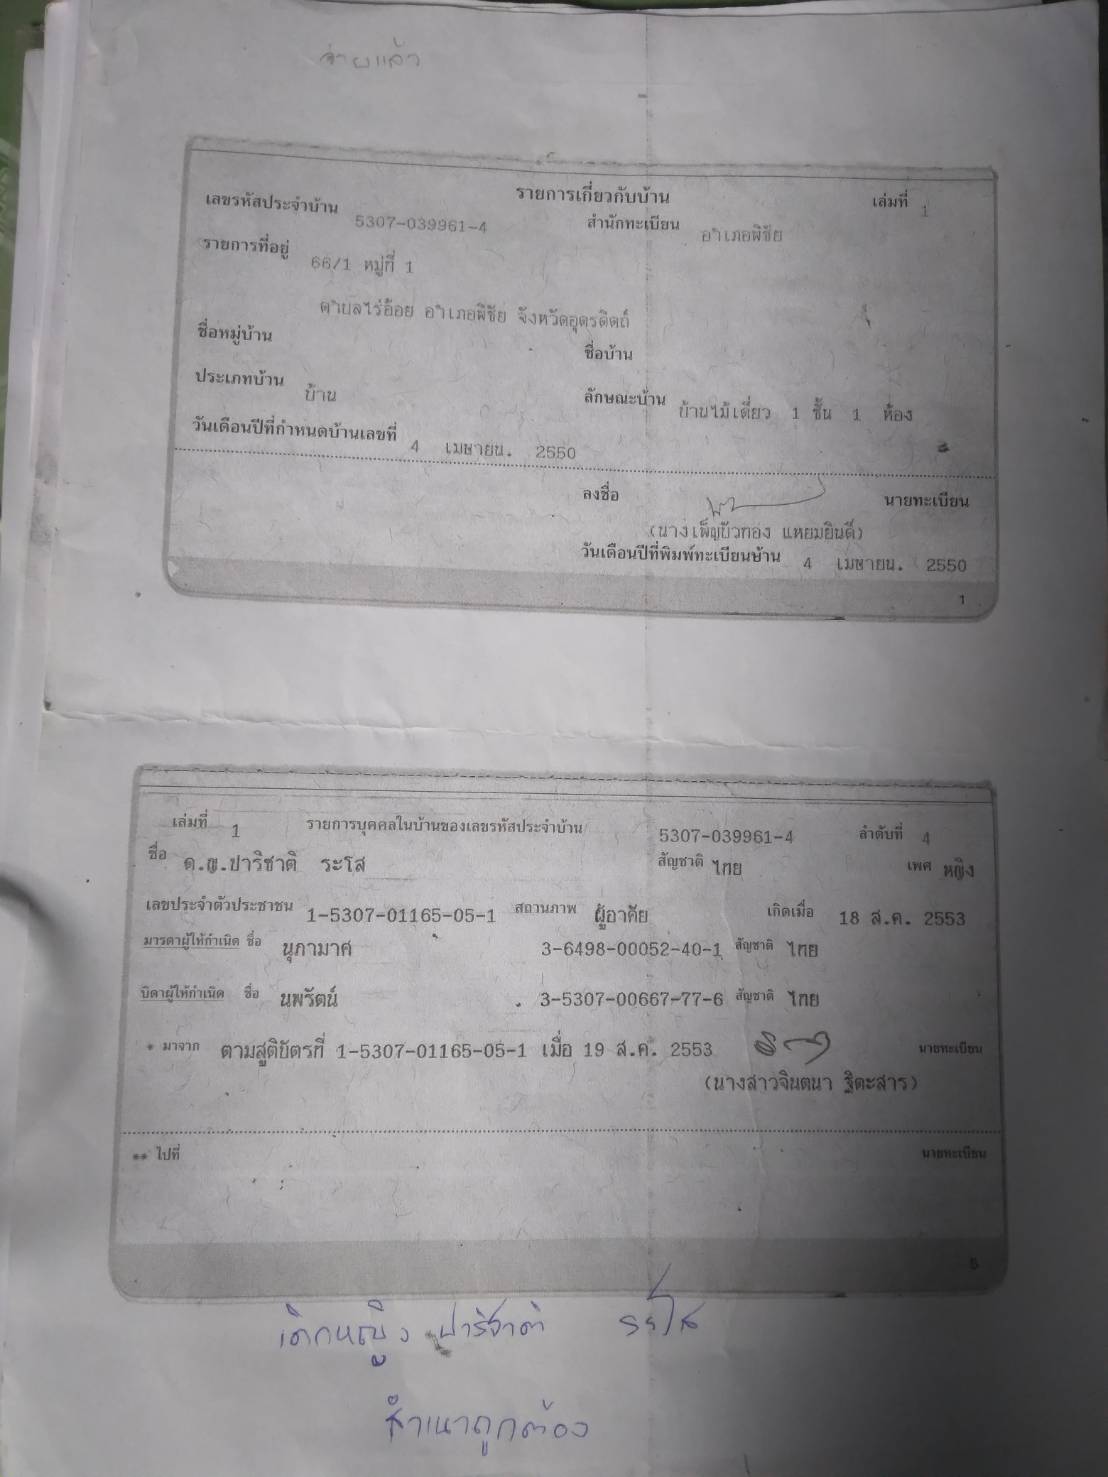 จ่ายแล้ว
รายการเกี่ยวกับบ้าน เล่มที่ 1
เลขรหัสประจำบ้าน 5307-039961-4 สำนักทะเบียน อำเภอพิชัย
รายการที่อยู่ 66/1 หมู่ที่ 1
ตำบลไร่อ้อย อำเภอพิชัย จังหวัดอุตรดิตถ์
ชื่อหมู่บ้าน ชื่อบ้าน
ประเภทบ้าน บ้าน ลักษณะบ้าน บ้านไม้เดี่ยว 1 ชั้น 1 ห้อง
วันเดือนปีที่กำหนดบ้านเลขที่ 4 เมษายน. 2550
ลงชื่อ นายทะเบียน
(นางเพ็ญบัวทอง แหยมยินดี)
วันเดือนปีที่พิมพ์ทะเบียนบ้าน 4 เมษายน. 2550
1
เล่มที่ 1 รายการบุคคลในบ้านของเลขรหัสประจำบ้าน 5307-039961-4 ลำดับที่ 4
ชื่อ ด.ญ.ปาริชาติ ระโส สัญชาติ ไทย เพศ หญิง
เลขประจำตัวประชาชน 1-5307-01165-05-1 สถานภาพ ผู้อาศัย เกิดเมื่อ 18 ส.ค. 2553
มารดาผู้ให้กำเนิด ชื่อ นุภามาศ 3-6498-00052-40-1 สัญชาติ ไทย
บิดาผู้ให้กำเนิด ชื่อ นพรัตน์ 3-5307-00667-77-6 สัญชาติ ไทย
* มาจาก ตามสูติบัตรที่ 1-5307-01165-05-1 เมื่อ 19 ส.ค. 2553 นายทะเบียน
(นางสาวจินตนา ฐิตะสาร)
** ไปที่ นายทะเบียน
5
เด็กหญิง ปาริชาติ ระโส
สำเนาถูกต้อง